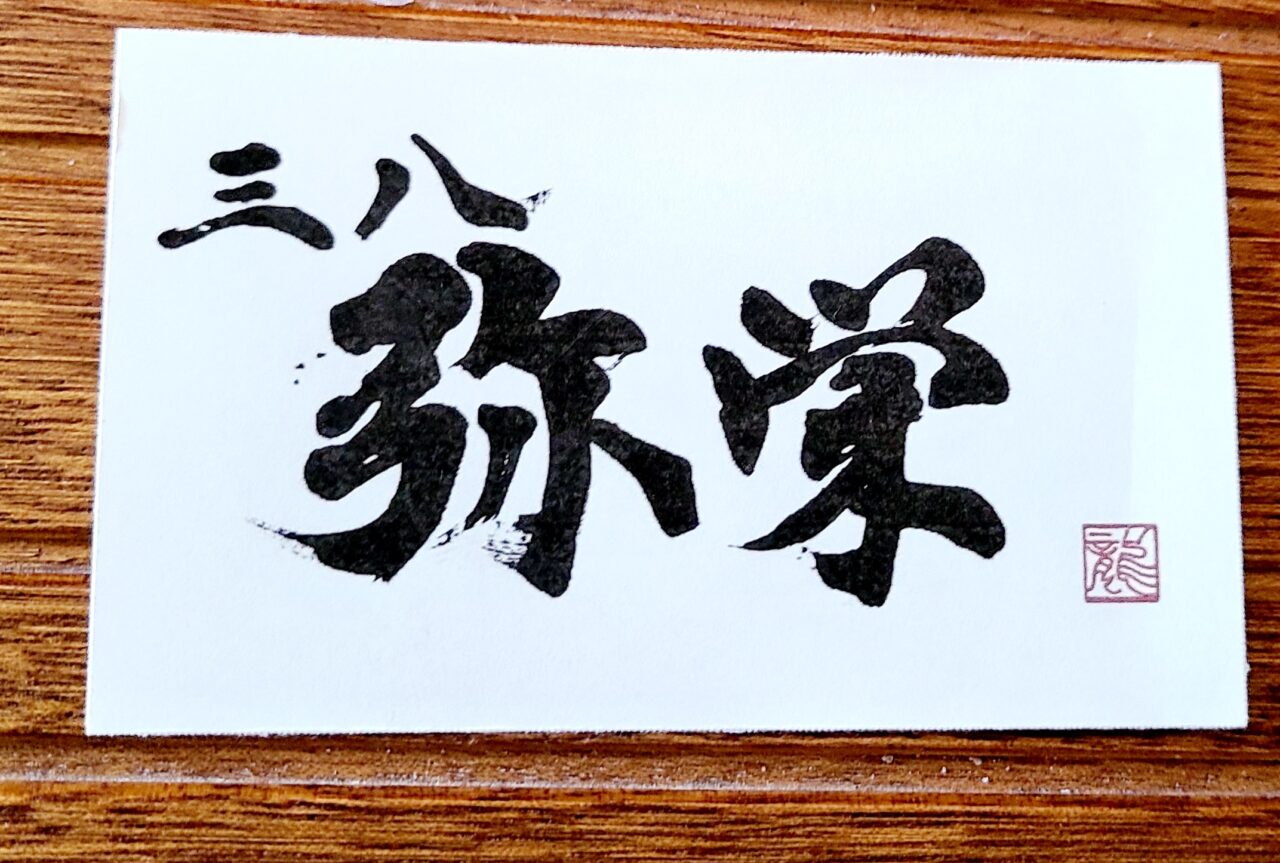 三八
弥栄
龍